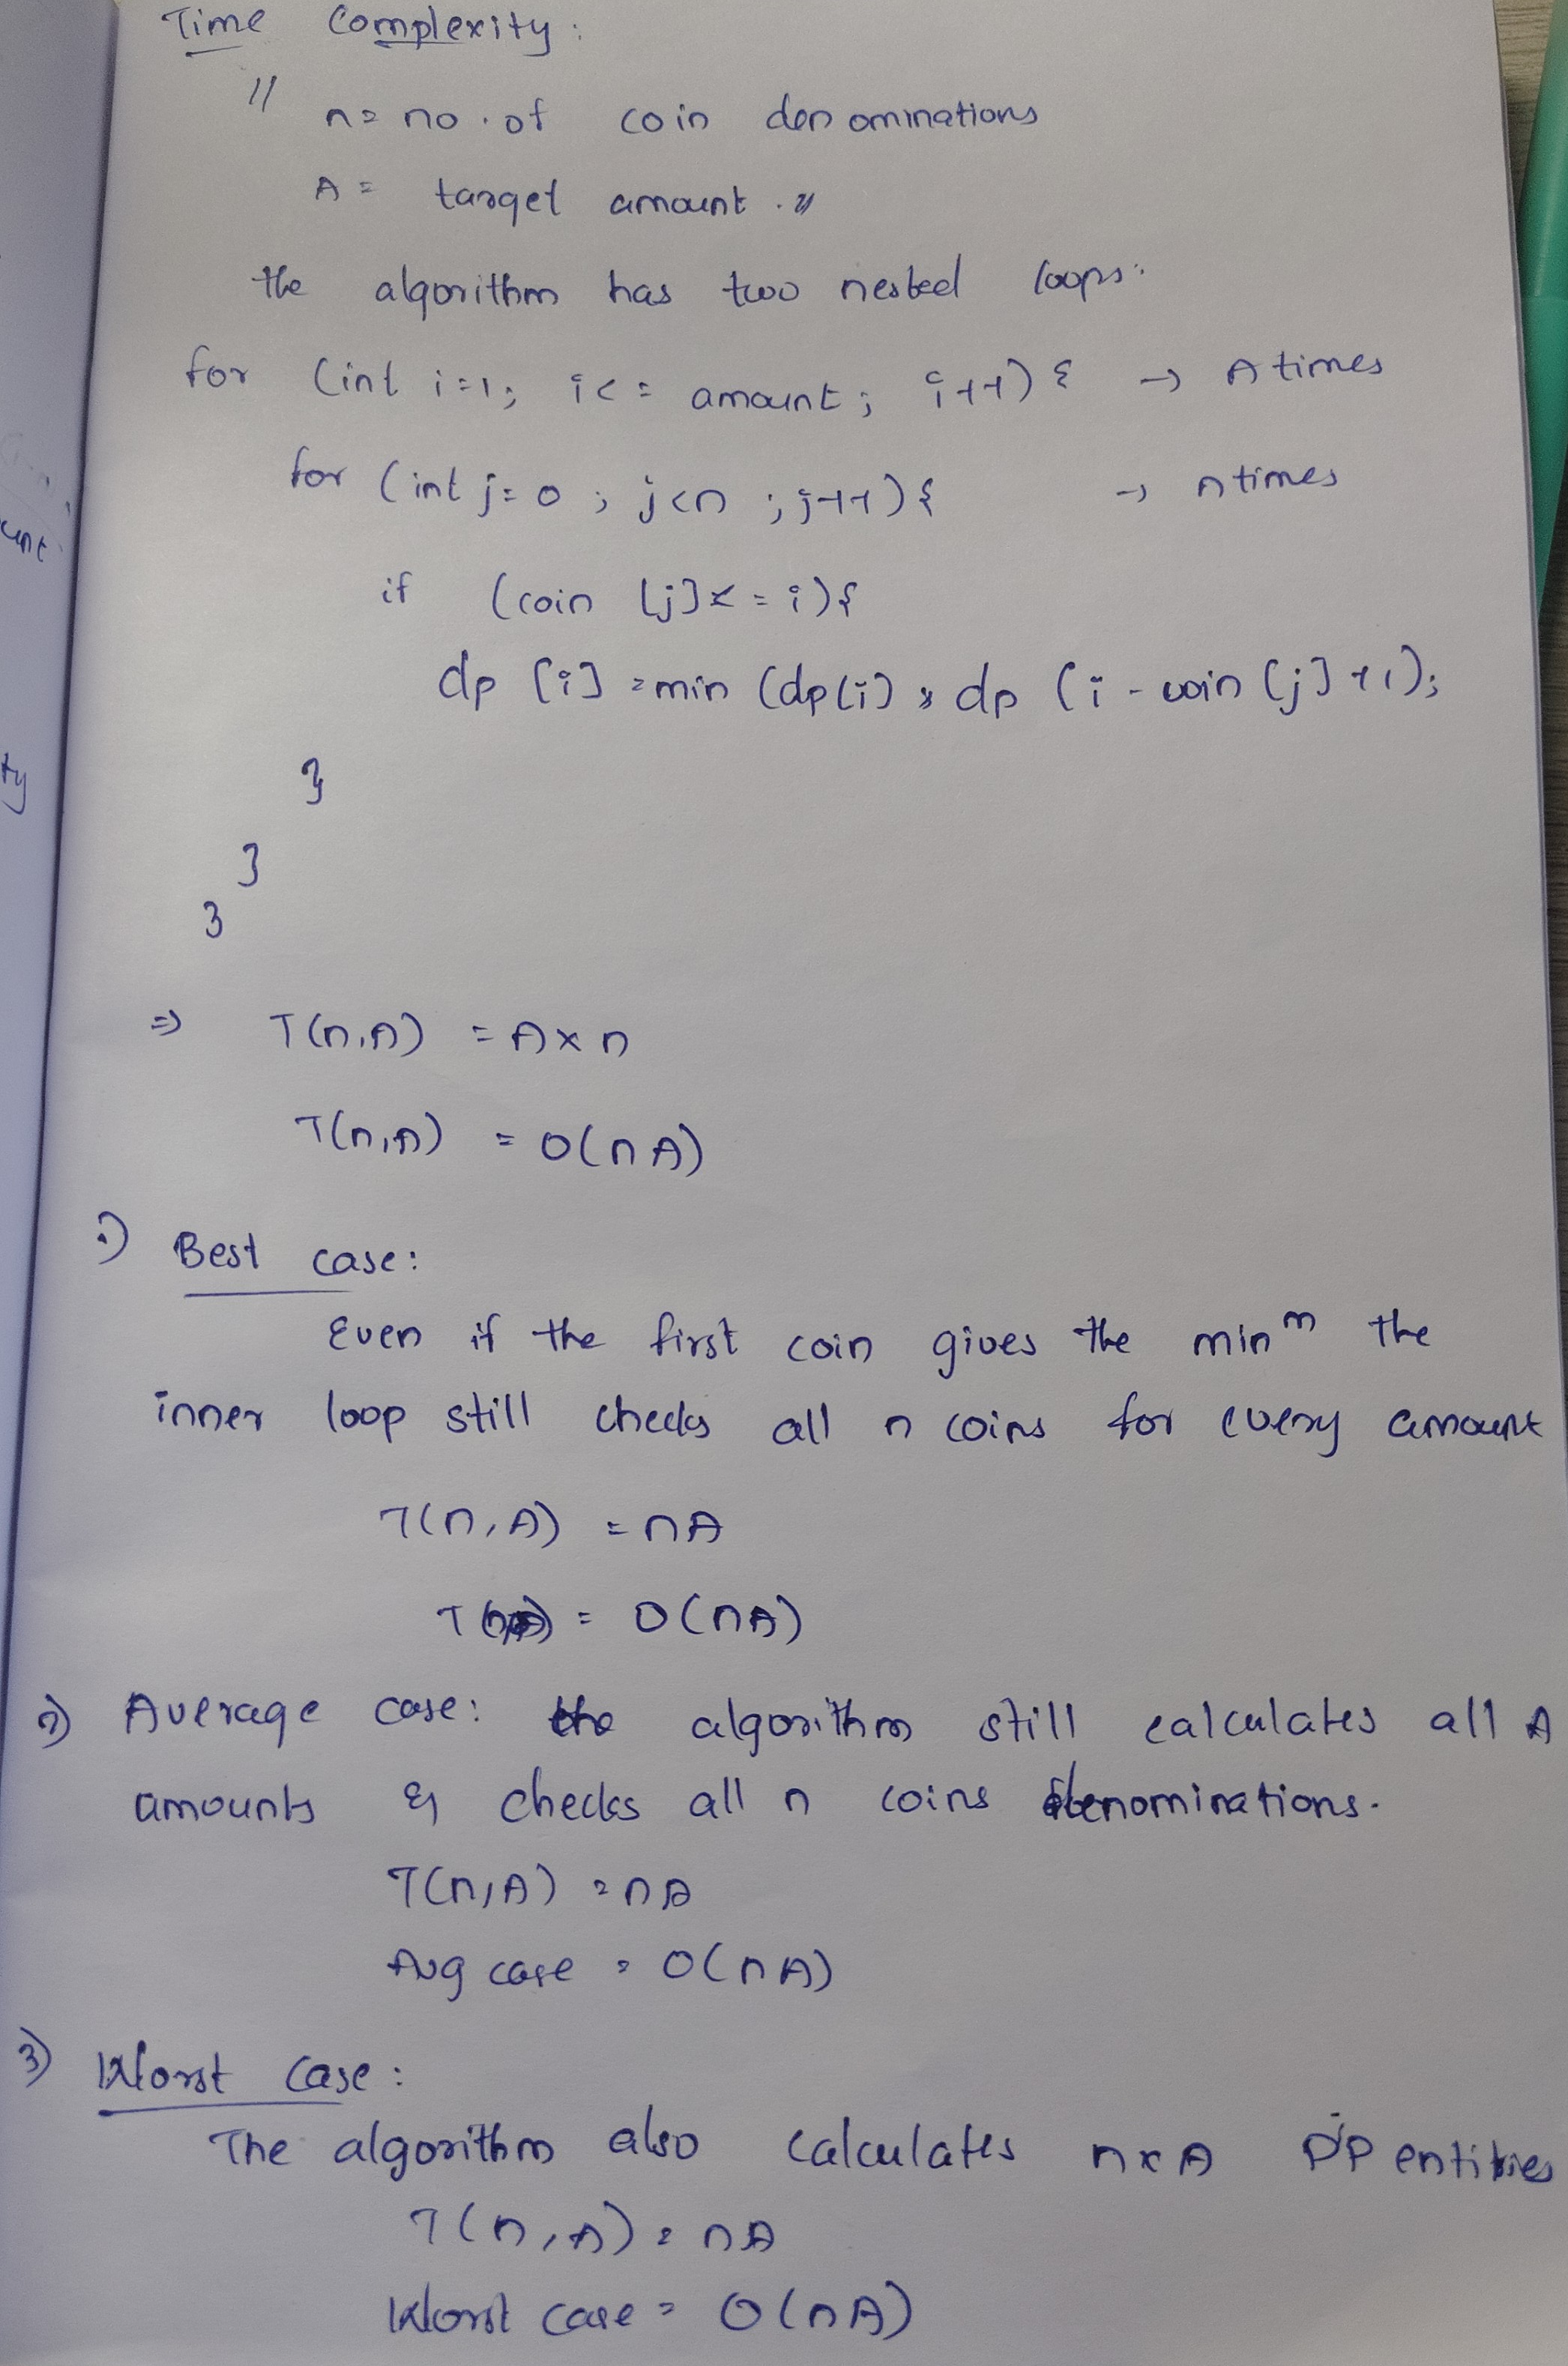 Time Complexity:
// n = no. of coin denominations
A = target amount. //
the algorithm has two nested loops:
for (int i=1; i<= amount; i++) { → A times
for (int j=0; j<n; j++) { → n times
if (coin [j] <= i) {
dp [i] = min (dp[i], dp (i - coin [j] +1);
}
}
}
⇒ T(n,A) = A x n
T(n,A) = O(nA)
1) Best case:
Even if the first coin gives the minm the
inner loop still checks all n coins for every amount
T(n,A) = nA
T(n,A) = O(nA)
2) Average case: the algorithm still calculates all A
amounts & checks all n coins denominations.
T(n,A) = nA
Avg case = O(nA)
3) Worst case:
The algorithm also calculates n x A DP entities
T(n,A) = nA
Worst case = O(nA)
unt
ty